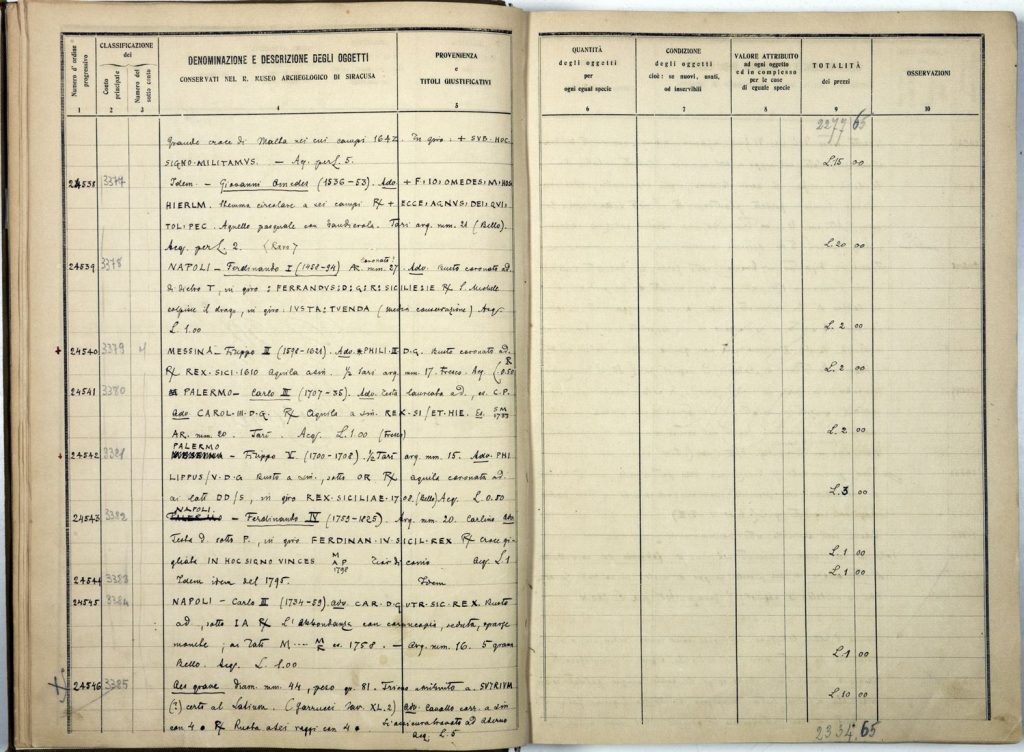 Numero d'ordine progressivo
CLASSIFICAZIONE
del
Costo principale
Numero del sotto costo
DENOMINAZIONE E DESCRIZIONE DEGLI OGGETTI
CONSERVATI NEL R. MUSEO ARCHEOLOGICO DI SIRACUSA
PROVENIENZA
e
TITOLI GIUSTIFICATIVI
1 2 3 4 5
Grande croce di Malta nei cui campi 1642. In giro: + SVB·HOC·
SIGNO·MILITAMVS. — Aq. per L. 5.
24538 3377 Idem. — Giovanni Omedes (1536-53). Ado + F·IO·OMEDES·M·HOS
HIERLM. Stemma circolare a sei campi R/ + ECCE·AGNVS·DEI·QVI·
TOLI·PEC. Agnello pasquale con banderola. Tarì arg. mm. 21 (Bello).
Acq. per L. 2. (Raro)
24539 3378 NAPOLI — Ferdinando I (1458-94) Coronato! AR. mm. 27. Ado. Busto coronato ad.
di dietro T, in giro : FERRANDVS:D:G:R:SICILIE:IE R/ S. Michele
colpisce il drago, in giro: IVSTA:TVENDA (media conservazione) Acq.
L. 1.00
+ 24540 3379 4 MESSINA — Filippo III (1598-1621). Ado. PHILI·III·D·G. Busto coronato ad.
R/ REX·SICI·1610 Aquila a sin. ½ Tarì arg. mm. 17. Fresco. Acq. L. 0.50
24541 3380 PALERMO — Carlo III (1707-35). Ado. Testa laureata ad., es. C.P.
Ado CAROL·III·D·G. R/ Aquila a sin. REX·SI/ET·HIE. Es. SM 1733
AR. mm. 20. Tarì. Acq. L. 1.00 (Fresco)
PALERMO
24542 3381 MESSINA — Filippo V. (1700-1708). ½ Tarì arg. mm. 15. Ado. PHI
LIPPUS/V·D·G Busto a sin., sotto OR R/ aquila coronata ad.
ai lati DD/S, in giro REX·SICILIAE·1708. (Bello) Acq. L. 0.50
NAPOLI.
24543 3382 PALERMO — Ferdinando IV (1759-1825). Arg. mm. 20. Carlino Ado
Testa d. sotto P., in giro FERDINAN·IV·SICIL·REX R/ Croce gi-
gliata IN HOC SIGNO VINCES M AP 1798 Fior di conio Acq. L. 1
24544 3383 Idem idem del 1795. Idem
24545 3384 NAPOLI — Carlo III (1734-59) ado. CAR·D·G·UTR·SIC·REX. Busto
ad., sotto IA R/ L'Abbondanza con cornucopia, seduta, sparge
monete; ai lati M M R es. 1758. — Arg. mm. 16. 5 grana
Bello. Acq. L. 1.00
24546 3385 Aes grave diam. mm. 44, peso gr. 81. Triens attribuito a. SVTRIVM
(?) certo al Latium. (Garrucci Tav. XL.2) Ado. Cavallo corr. a sin
con 4 • R/ Ruota a sei raggi con 4 •
Si assicura trovato ad Aderno
Acq. L. 5
QUANTITÀ
degli oggetti
per
ogni egual specie
CONDIZIONE
degli oggetti
cioè: se nuovi, usati,
od inservibili
VALORE ATTRIBUITO
ad ogni oggetto
ed in complesso
per le cose
di eguale specie
TOTALITÀ
dei prezzi
OSSERVAZIONI
6 7 8 9 10
2277 65
L. 15 00
L. 20 00
L. 2 00
L. 2 00
L. 2 00
L. 3 00
L. 1 00
L. 1 00
L. 1 00
L. 10 00
2334. 65